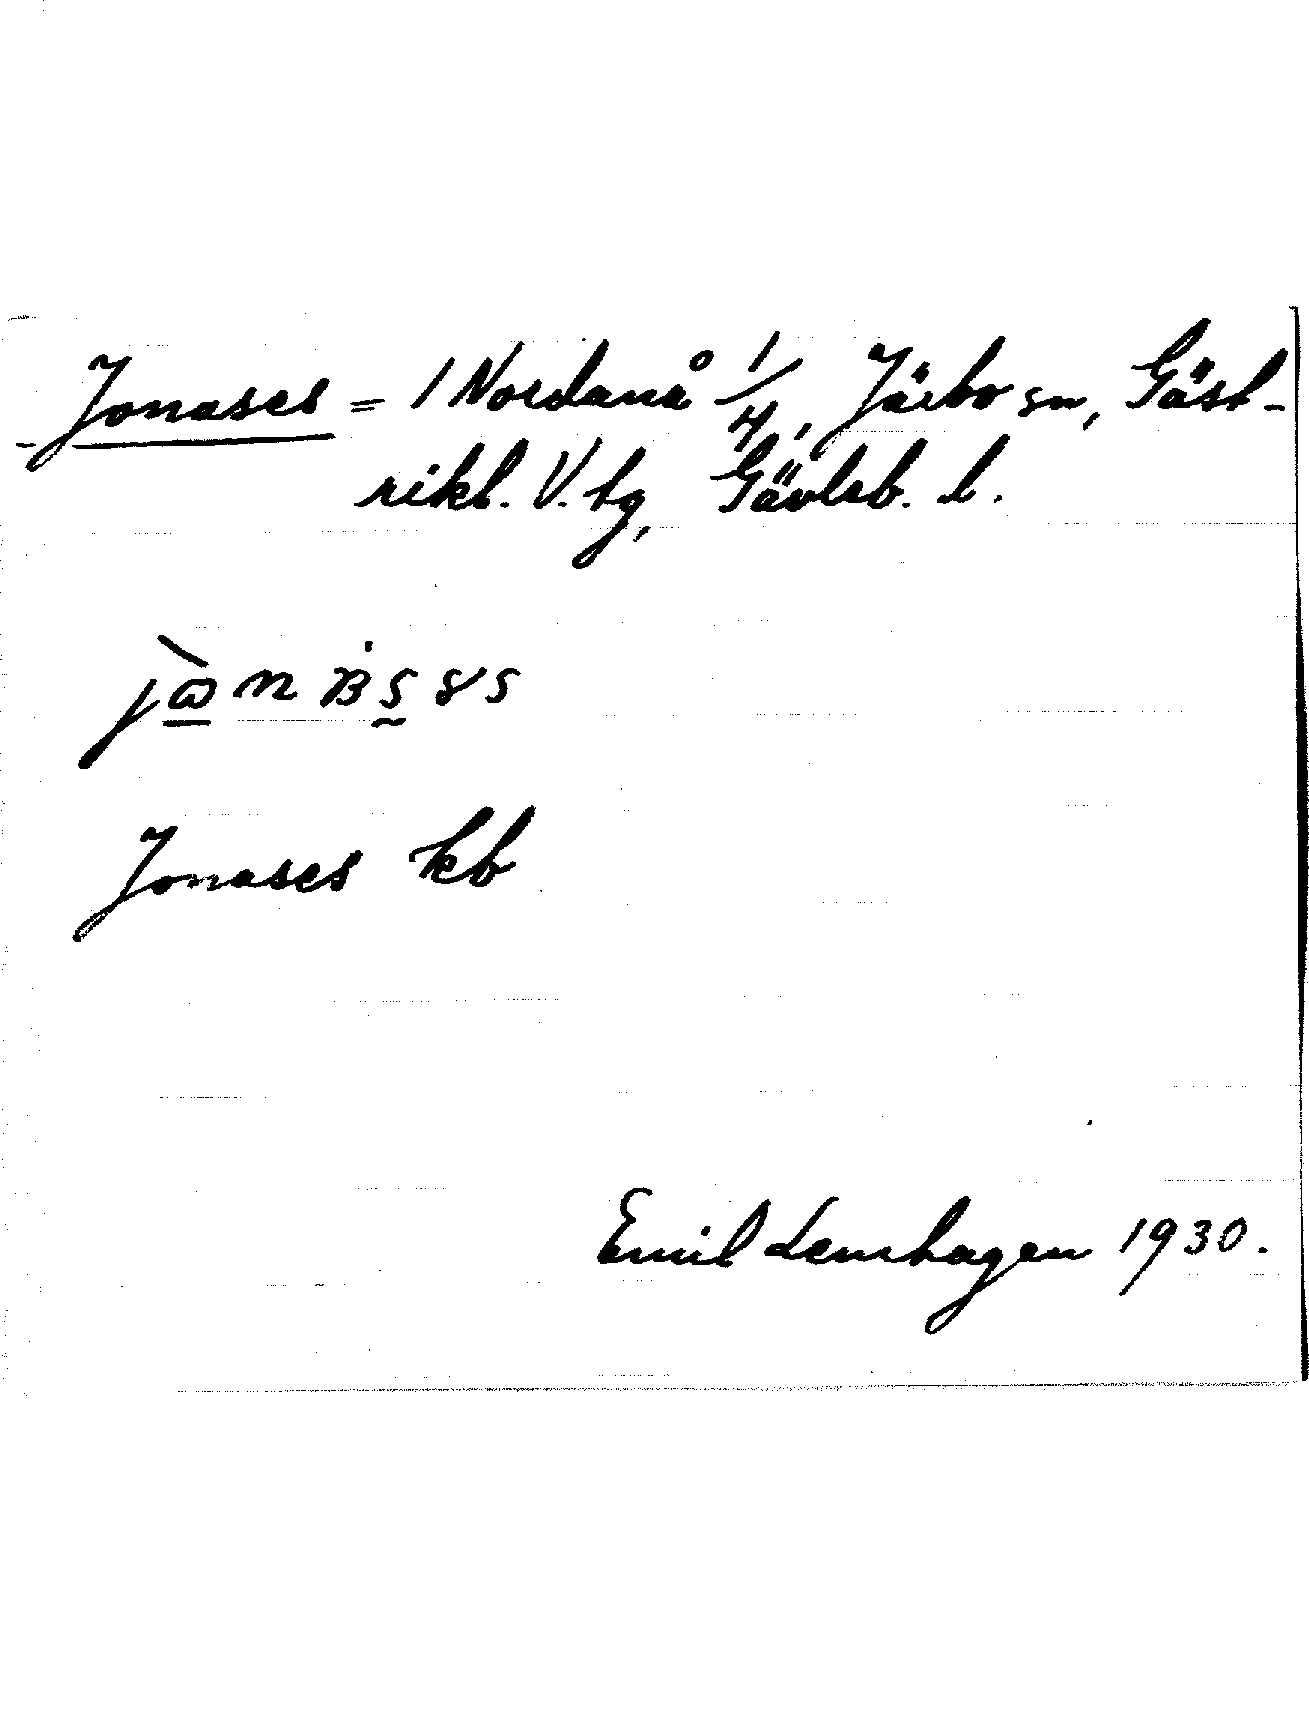 Jonases = 1 Nordanå 1/4, Järbo sn, Gäst-
rikl. V. tg, Gävleb. l.
Jonases kb
Emil Lenshagen 1930.